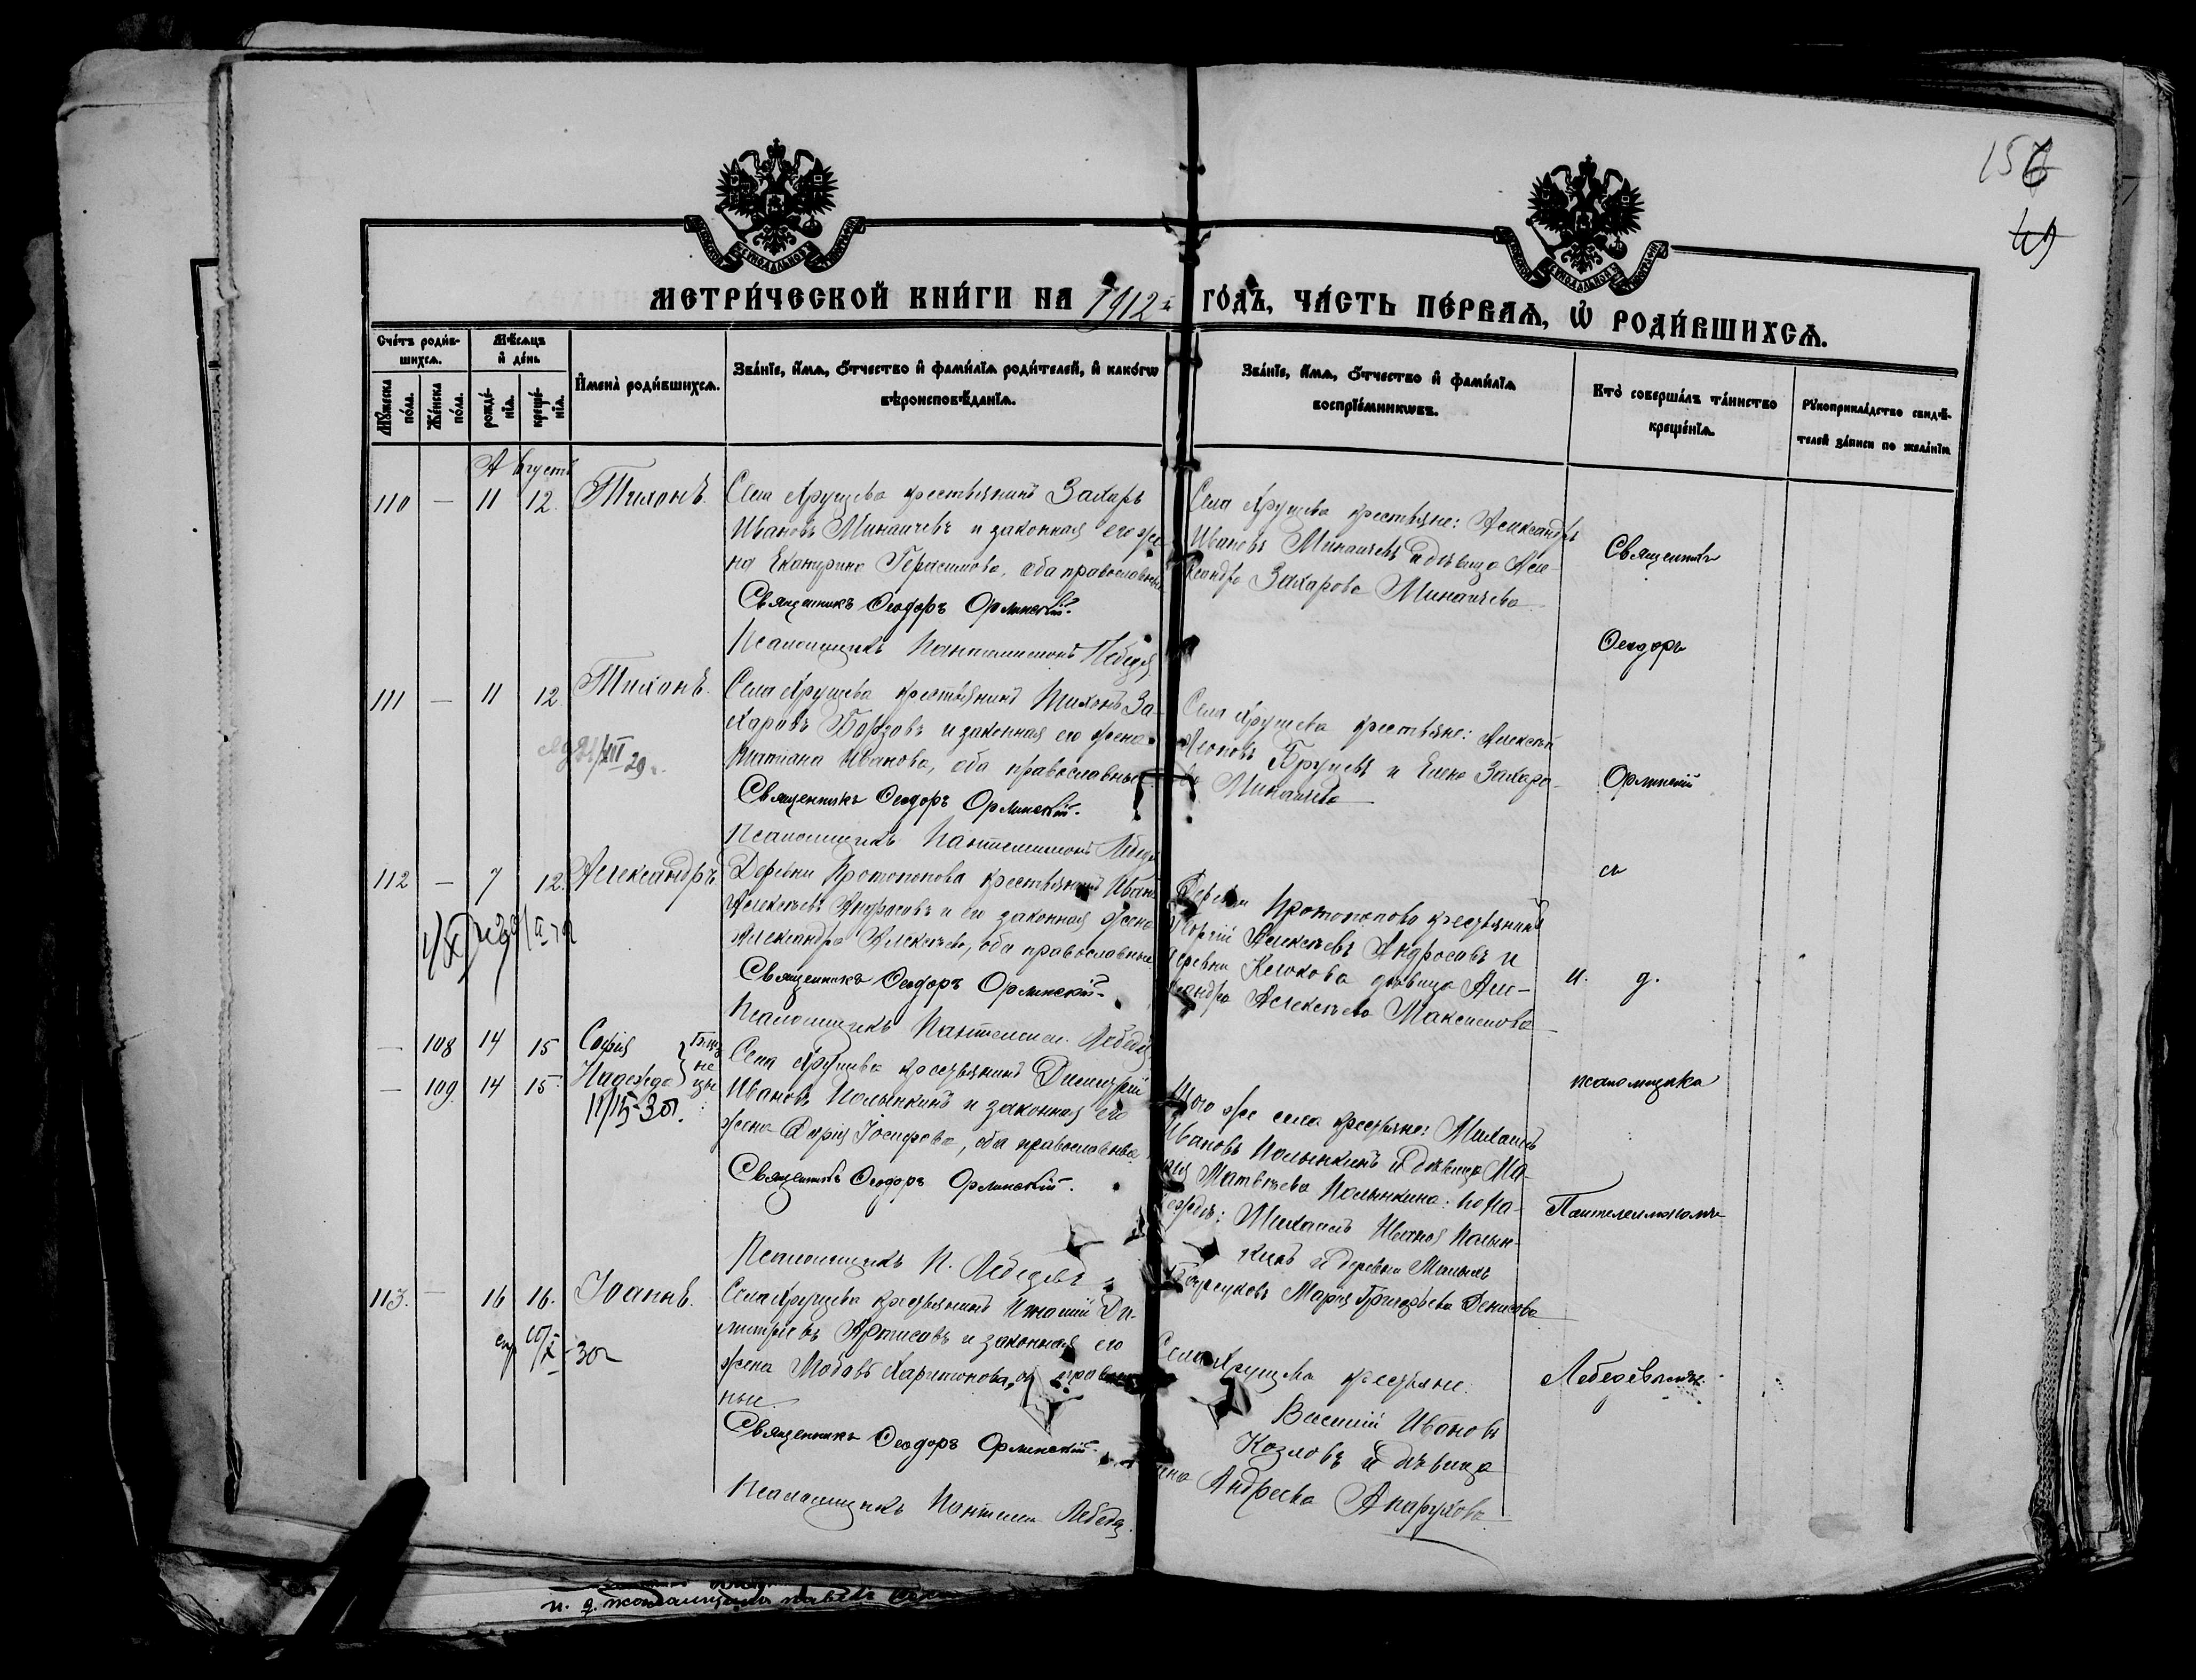 156
МЕТРИ́ЧЕСКОЙ КНИ́ГИ НА 1912 ГО́ДЪ, ЧА́СТЬ ПЕ́РВАЯ, Ѡ РОДИ́ВШИХСЯ.
Сче́тъ роди́в-
шихся.
Мѣ́сяцъ
и де́нь
Му́жеска
по́ла.
Же́нска
по́ла.
рожде́-
нія.
креще́-
нія.
Имена̀ роди́вшихся.
Зва́ніе, и́мя, о́тчество и фами́лія роди́телей, и како́гѡ
вѣроисповѣ́данія.
Зва́ніе, и́мя, о́тчество и фами́лія
воспріе́мникѡвъ.
Кто̀ соверша́лъ та́инство
креще́нія.
Рукоприкла́дство свидѣ́-
телей за́писи по жела́нію
Августъ
110 — 11 12. Тихонъ.
Села Хрущева крестьянинъ Захаръ
Ивановъ Минаичевъ и законная его же-
на Екатерина Герасимова, оба православные
Священникъ Ѳеодоръ Орлинскій.
Псаломщикъ Пантелеимонъ Лебедев
Села Хрущева крестьяне: Александръ
Ивановъ Минаичевъ и дѣвица Але-
ксандра Захарова Минаичева
Священникъ
Ѳеодоръ
Орлинскій
съ
и. д.
псаломщика
Пантелеимономъ
Лебедевымъ.
111 — 11 12. Тихонъ.
Села Хрущева крестьянинъ Тихонъ За-
харовъ Борзовъ и законная его жена
Татіана Иванова, оба православные
Священникъ Ѳеодоръ Орлинскій.
Псаломщикъ Пантелеимонъ Лебедев
Села Хрущева крестьяне: Алексѣй
Бруцевъ и Елена Захаро-
ва Минаичева
112 — 7 12. Александръ.
Деревни Протопопова крестьянинъ Иванъ
Алексѣевъ Андросовъ и его законная жена
Александра Алексѣева, оба православные
Священникъ Ѳеодоръ Орлинскій.
Псаломщикъ Пантелеим. Лебедев
Деревни Протопопова крестьянинъ
Георгій Алексѣевъ Андросовъ и
деревни Клокова дѣвица Але-
ксандра Алексѣева Максимова
— 108 14 15 Софія
— 109. 14 15. Надежда
Близ
не
цы
11/IV-30г.
Села Хрущева крестьянинъ Димитрій
Ивановъ Полынкинъ и законная его
жена Дарія Іосифова, оба православные.
Священникъ Ѳеодоръ Орлинскій.
Псаломщикъ П. Лебедевъ
Того же села крестьяне: Михаилъ
Ивановъ Полынкинъ и дѣвица Ма-
рія Матвѣева Полынкина: по На-
деждѣ: Михаилъ Иванов Полын-
кинъ и деревни Малыхъ
Марія Григорьева Денисова
113. — 16 16. Іоаннъ.
Села Хрущева крестьянинъ Игнатій Ди-
митріевъ и законная его
жена Любовь Харитонова, об православ
ные.
Священникъ Ѳеодоръ Орлинскій.
Псаломщикъ Пантелеи Лебедев.
Села Хрущева крестьяне:
Василій Ивановъ
Козловъ и дѣвица
Андреева Апарухова
и. д. псаломщика